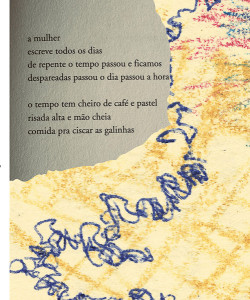 a mulher
escreve todos os dias
de repente o tempo passou e ficamos
despareadas passou o dia passou a hora
o tempo tem cheiro de café e pastel
risada alta e mão cheia
comida pra ciscar as galinhas